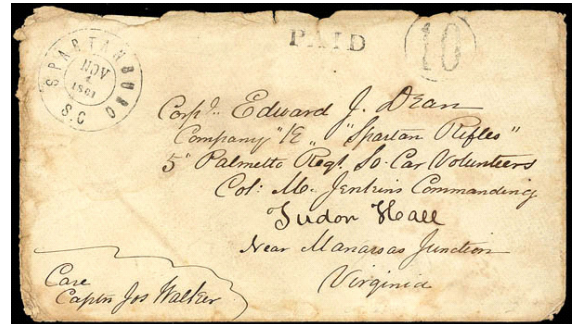 SPARTANBURG S.C
NOV
1
1861
PAID
10
Corpl. Edward J. Dean
Company "E" "Spartan Rifles"
5" Palmetto Regt. So. Car Volunteers
Col: M. Jenkins Commanding
Tudor Hall
Near Manassas Junction
Virginia
Care
Captn Jos Walker